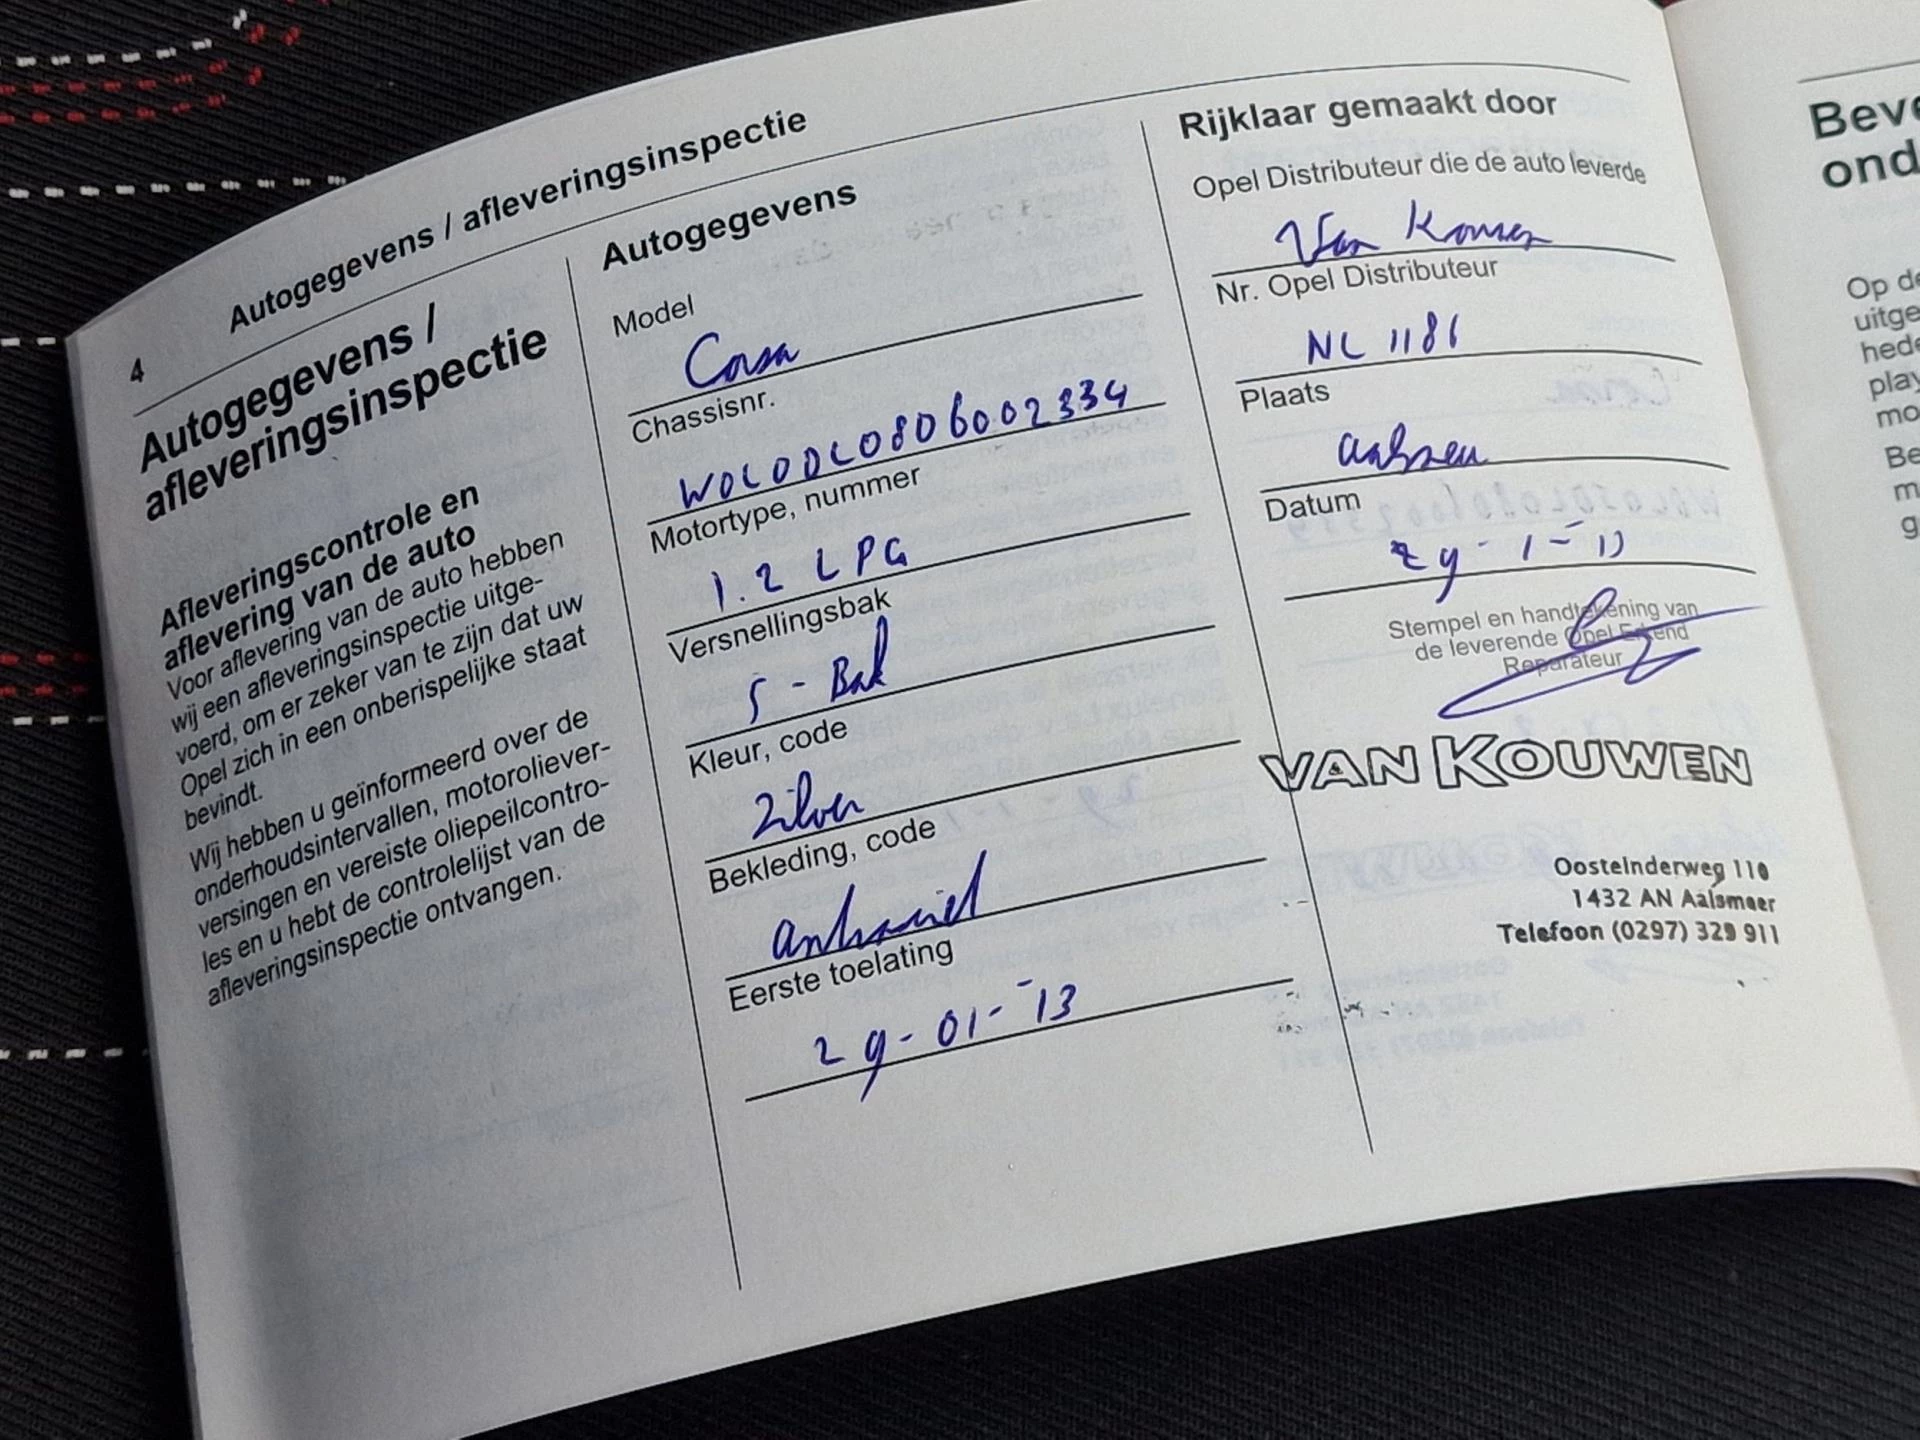 4
Autogegevens / afleveringsinspectie
Autogegevens /
afleveringsinspectie
Afleveringscontrole en
aflevering van de auto
Voor aflevering van de auto hebben
wij een afleveringsinspectie uitge-
voerd, om er zeker van te zijn dat uw
Opel zich in een onberispelijke staat
bevindt.
Wij hebben u geïnformeerd over de
onderhoudsintervallen, motoroliever-
versingen en vereiste oliepeilcontro-
les en u hebt de controlelijst van de
afleveringsinspectie ontvangen.
Autogegevens
Model
Corsa
Chassisnr.
W0L0DL0806002334
Motortype, nummer
1.2 LPG
Versnellingsbak
5 - Bak
Kleur, code
Zilver
Bekleding, code
Eerste toelating
29-01-'13
Rijklaar gemaakt door
Opel Distributeur die de auto leverde
Van Kouwen
Nr. Opel Distributeur
NL 1186
Plaats
Aalsmeer
Datum
29-1-13
Stempel en handtekening van
de leverende Opel Erkend
Reparateur
VAN KOUWEN
Oosteinderweg 110
1432 AN Aalsmeer
Telefoon (0297) 329 911
Beve
ond
Op de
uitge
hede
play
mo
Be
m
g